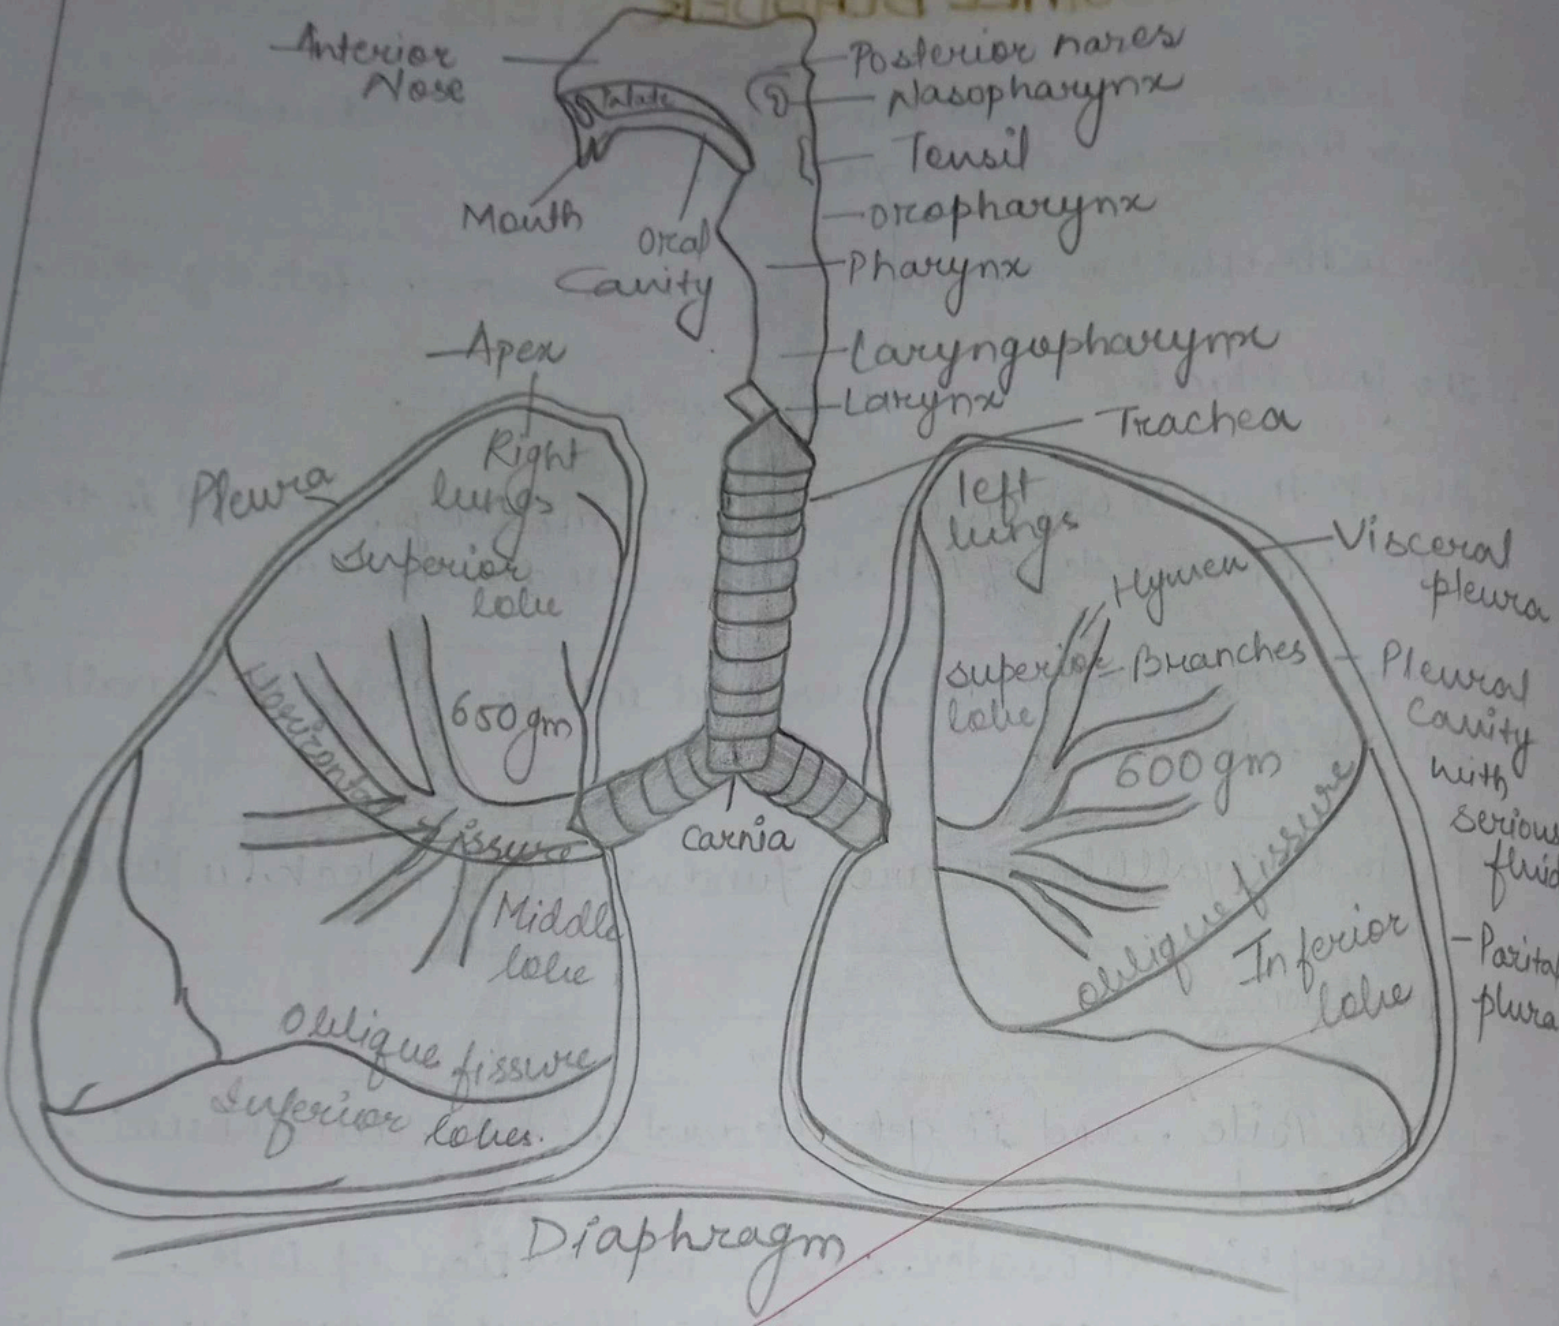 Anterior
Nose
Posterior nares
Nasopharynx
Palate
Tonsil
Mouth
Oral
Cavity
oropharynx
Pharynx
Laryngopharynx
Larynx
Trachea
Apex
Pleura
Right
lungs
Superior
lobe
650gm
Horizontal
fissure
Middle
lobe
Oblique fissure
Inferior lobes.
Carnia
left
lungs
Hymen
Superior
lobe
Branches
600gm
Oblique fissure
Inferior
lobe
Visceral
pleura
Pleural
Cavity
with
serious
fluid
Parital
plura
Diaphragm